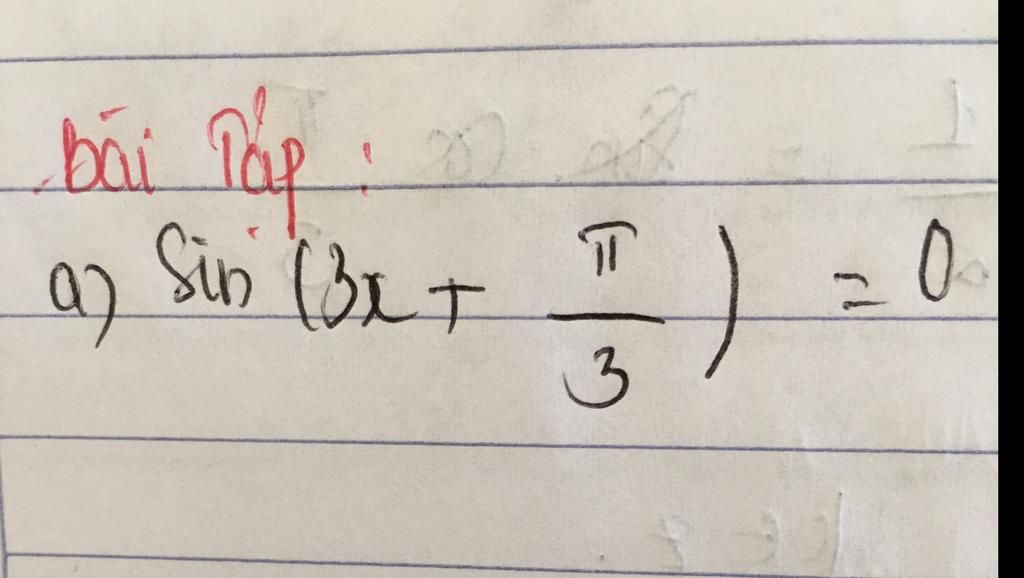 Bài Tập :
a) Sin (3x + π/3) = 0